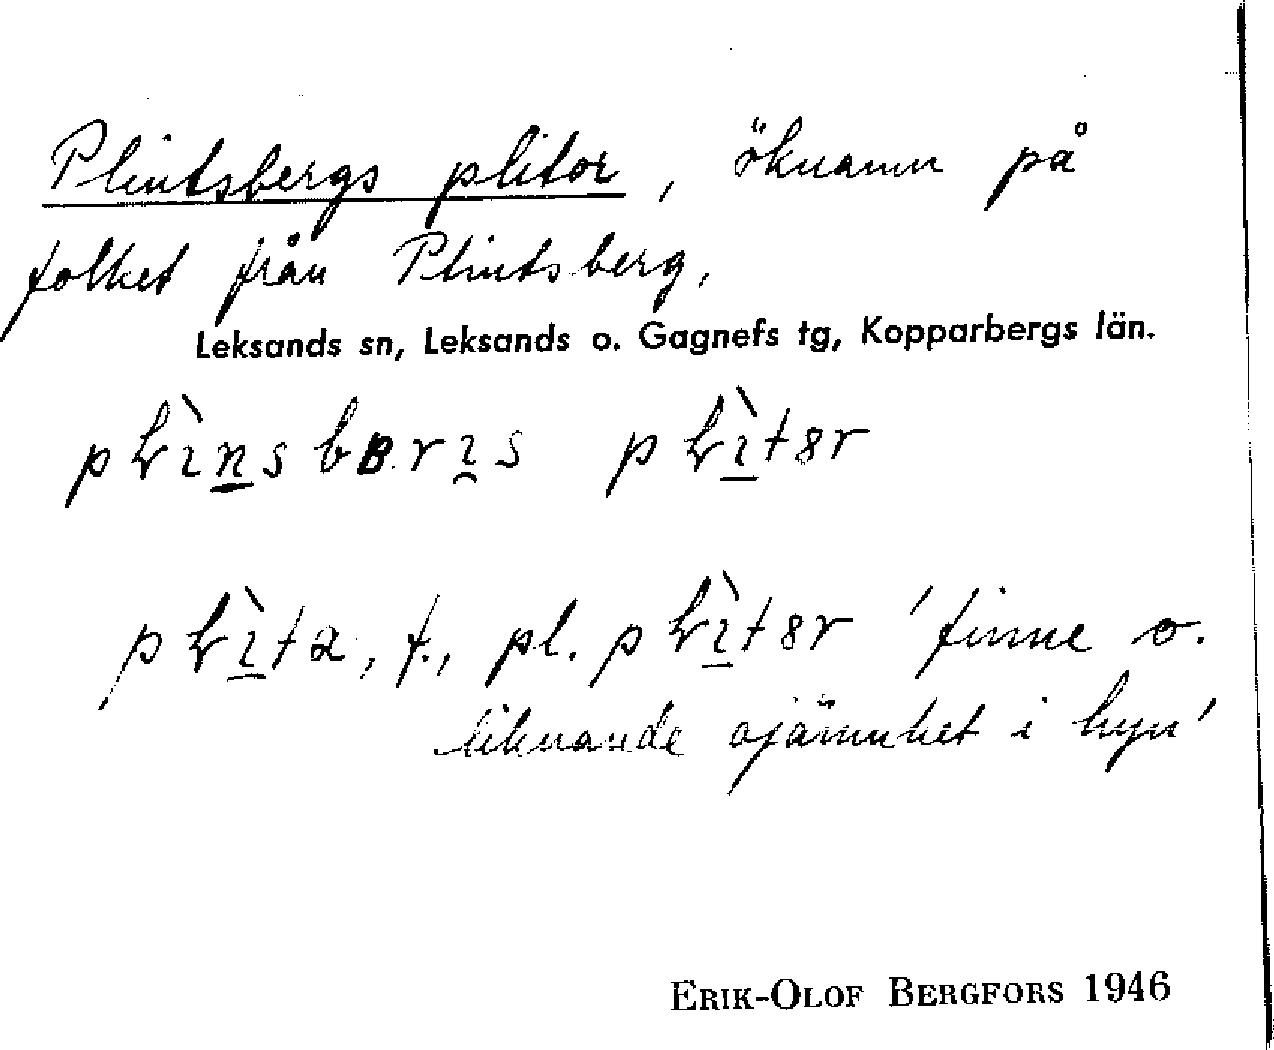 Plintsbergs plitor, öknamn på
folket från Plintsberg,
Leksands sn, Leksands o. Gagnefs tg, Kopparbergs län.
f., pl. 'finne o.
liknande ojämnhet i hyn'
ERIK-OLOF BERGFORS 1946